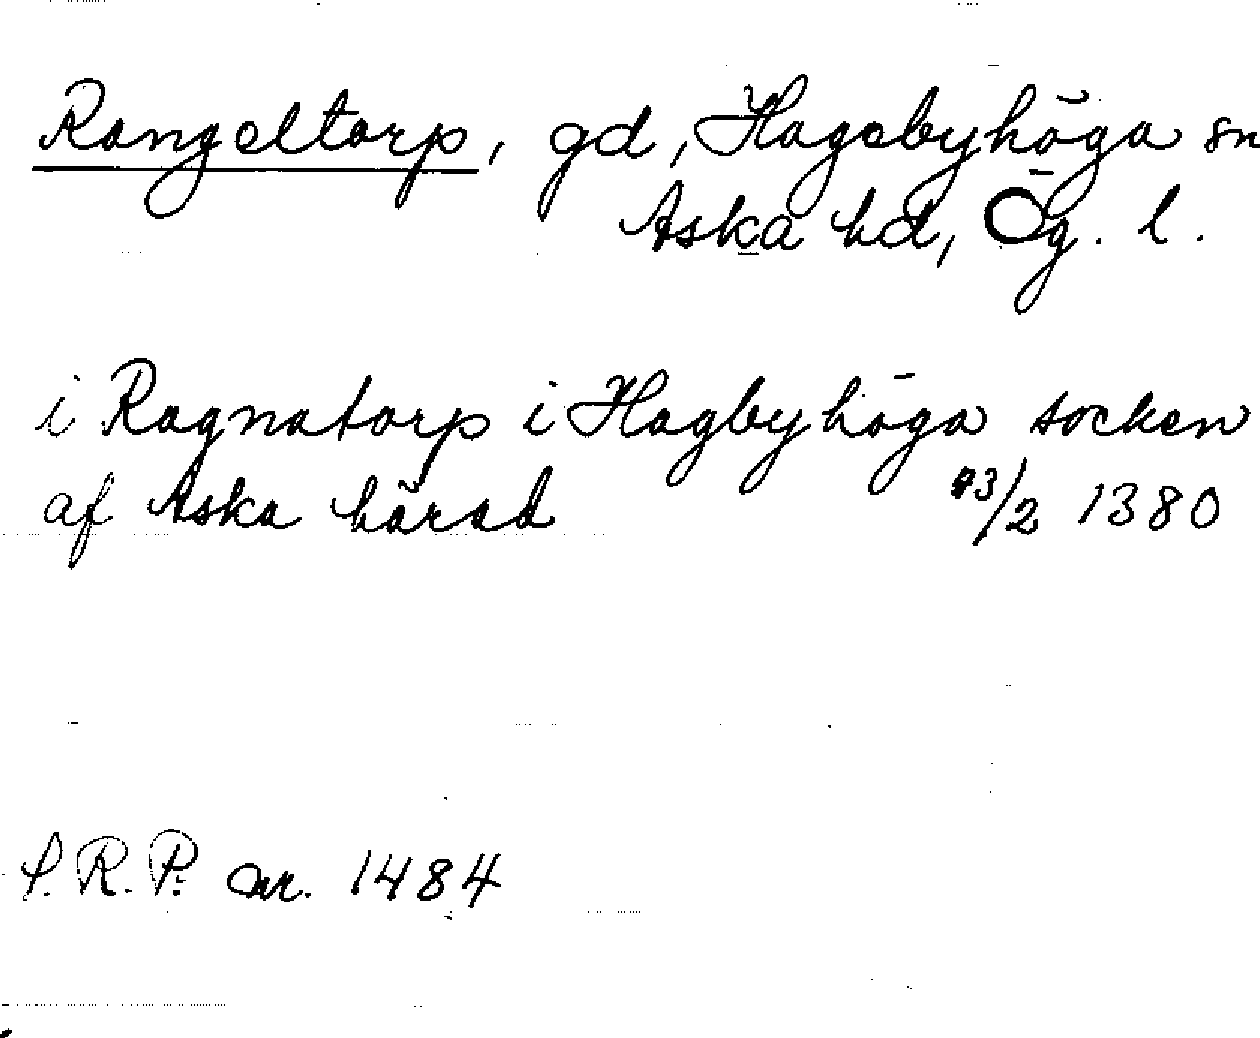 Rangeltorp, gd, Hagebyhöga sn
Aska hd, Ög. l.
i Ragnatorp i Hagbyhöga socken
af Aska härad 23/2 1380
S.R.P. nr. 1484